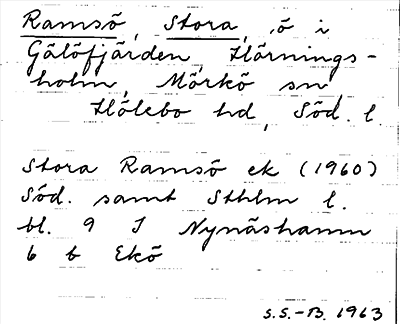 Ramsö, Stora, ö i
Gälöfjärden, Hörnings-
holm, Mörkö sn,
Hölebo hd, Söd. l.
Stora Ramsö ek (1960)
Söd. samt Sthlm l.
bl. 9 I Nynäshamn
6 b Ekö
S.S.-B. 1963